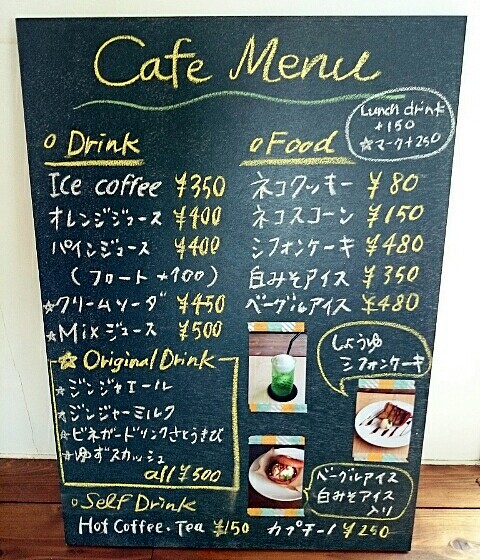 Cafe Menu
Lunch drink
+150
☆マーク+250
○ Drink
Ice coffee ¥350
オレンジジュース ¥400
パインジュース ¥400
(フロート+100)
☆クリームソーダ ¥450
☆Mixジュース ¥500
☆ Original Drink
☆ジンジャエール
☆ジンジャーミルク
☆ビネガードリンクさとうきび
☆ゆずスカッシュ
all ¥500
○ Food
ネコクッキー ¥80
ネコスコーン ¥150
シフォンケーキ ¥480
白みそアイス ¥350
ベーグルアイス ¥480
しょうゆ
シフォンケーキ
ベーグルアイス
白みそアイス
入り
○ Self Drink
Hot Coffee・Tea ¥150 カプチーノ ¥250